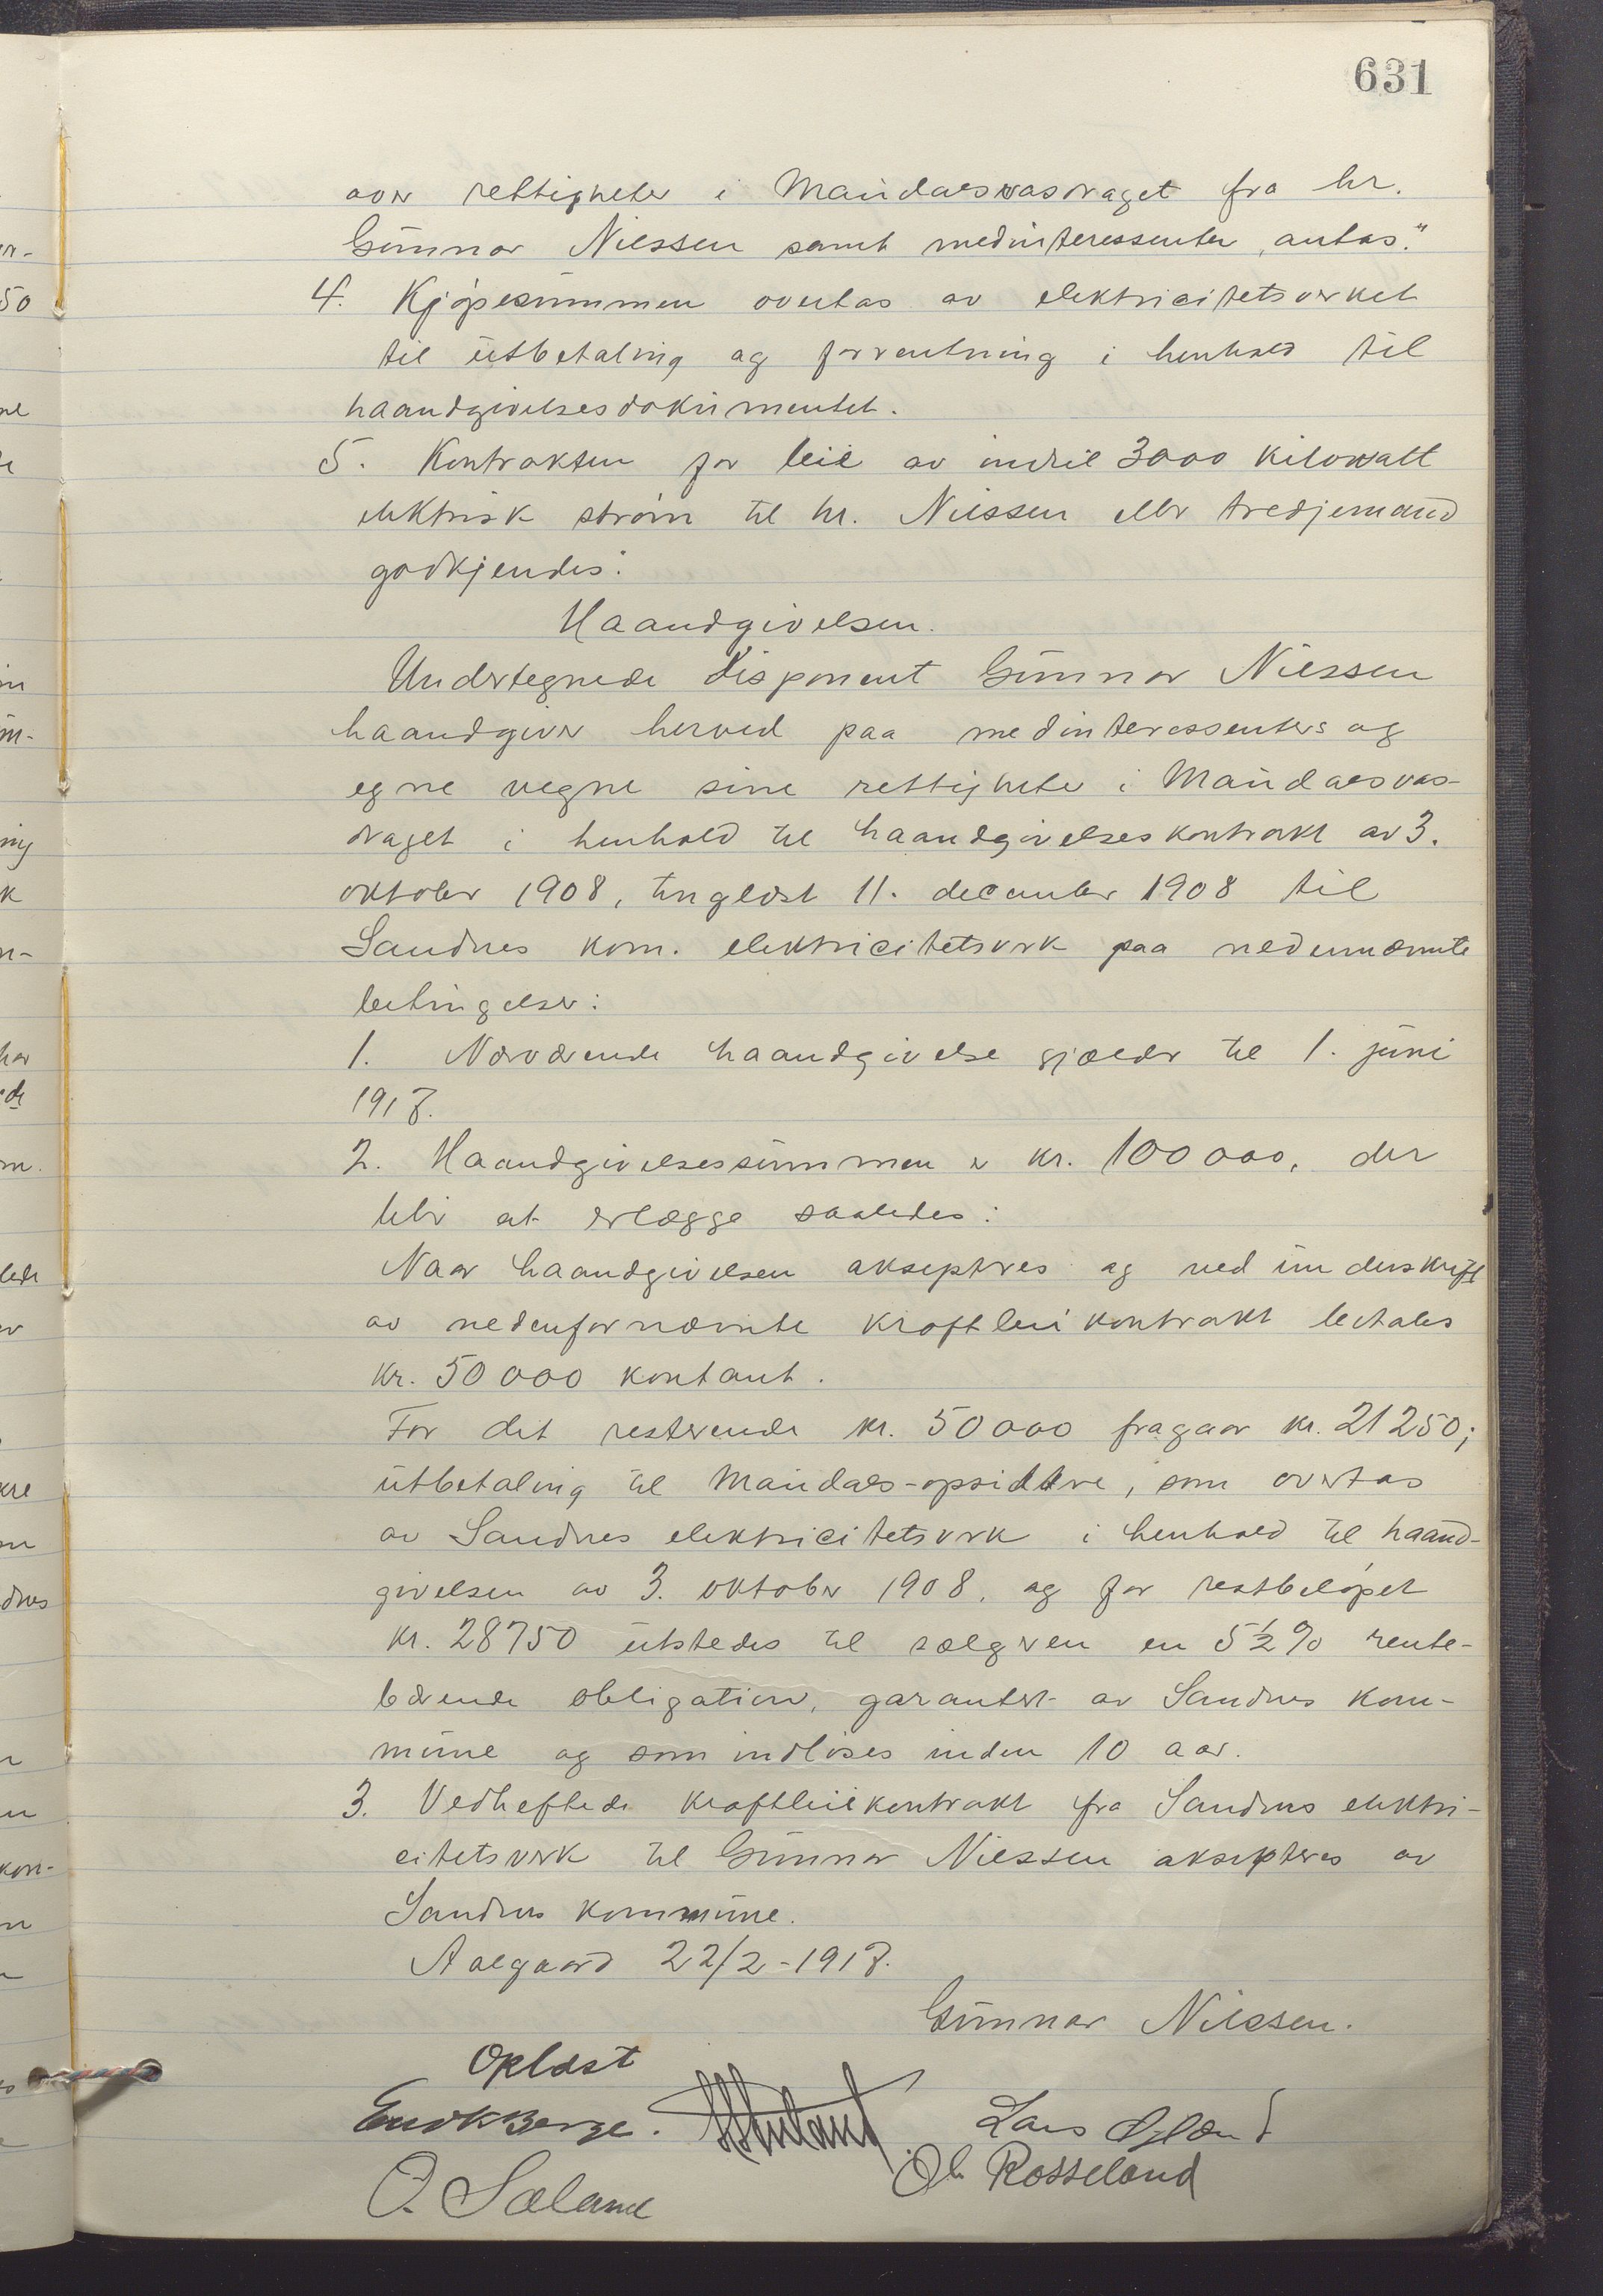 631
over rettigheter i Maudalsvasdraget fra hr.
Gunnar Nilssen samt medinteressenter, antas."
4. Kjøpesummen overtas av elektricitetsverket
til utbetaling og forrentning i henhold til
haandgivelsesdokumentet.
5. Kontrakten for leie av indtil 3000 kilowatt
elektrisk strøm til hr. Nilssen eller tredjemand
godkjendes."
Haandgivelsen.
Undertegnede disponent Gunnar Nilssen
haandgiver herved paa medinteressenters og
egne vegne sine rettigheter i Maudalsvas-
draget i henhold til haandgivelseskontrakt av 3.
oktober 1908, tinglæst 11. december 1908 til
Sandnes kom. elektricitetsverk paa nedennævnte
betingelser:
1. Nærværende haandgivelse gjælder til 1. juni
1917.
2. Haandgivelsessummen er kr. 100 000, der
blir at erlægge saaledes:
Naar haandgivelsen aksepteres og ved underskrift
av nedenfornævnte kraftleiekontrakt betales
kr. 50 000 kontant.
For det resterende kr. 50 000 fragaar kr. 21 250;
utbetaling til Maudals-opsiddere, som overtas
av Sandnes elektricitetsverk i henhold til haand-
givelsen av 3. oktober 1908, og for restbeløpet
kr. 28750 utstedes til sælgeren en 5 ½ % rente-
bærende obligation, garantert av Sandnes kom-
mune og som indløses inden 10 aar.
3. Vedheftede kraftleiekontrakt fra Sandnes elektri-
citetsverk til Gunnar Nilssen aksepteres av
Sandnes kommune.
Aalgaard 22/2-1917.
Gunnar Nilssen.
Oplæst
Enok Berge. Lars
O. Sæland Ole Rosseland